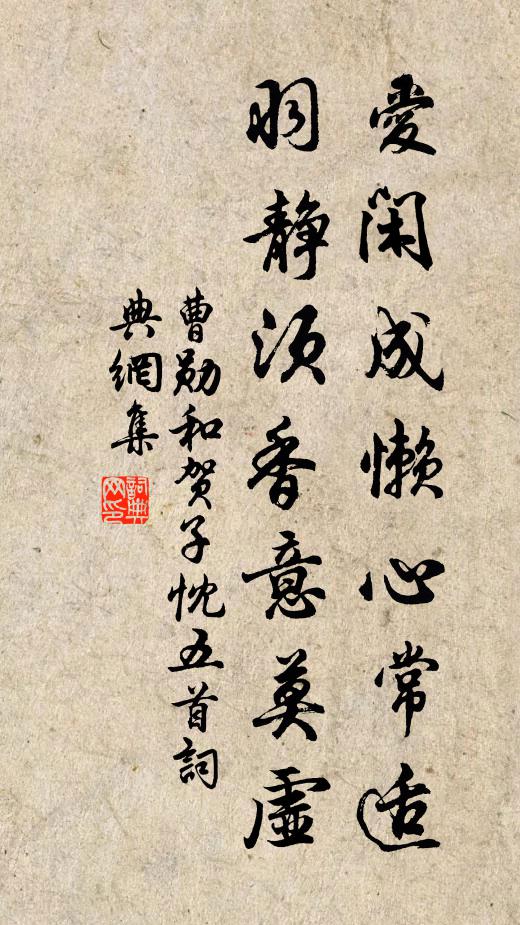 愛閑成懶心常适
明静須香意莫虚
曹勛和賀子忱五首詞
典網集
詞典
网印